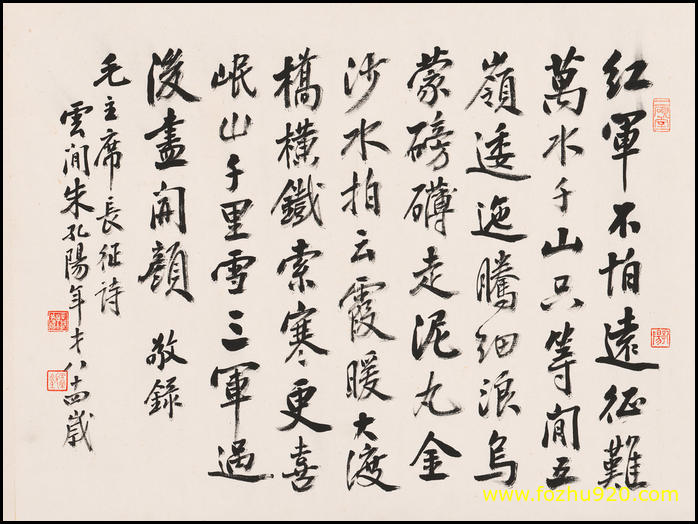 红軍不怕遠征難
萬水千山只等閒五
嶺逶迤騰细浪烏
蒙磅礴走泥丸金
沙水拍云霞暖大渡
橋橫鐵索寒更喜
岷山千里雪三軍過
後盡開顏 敬錄
毛主席長征詩
雲間朱孔陽年才八十四歲
www.fozhu920.com